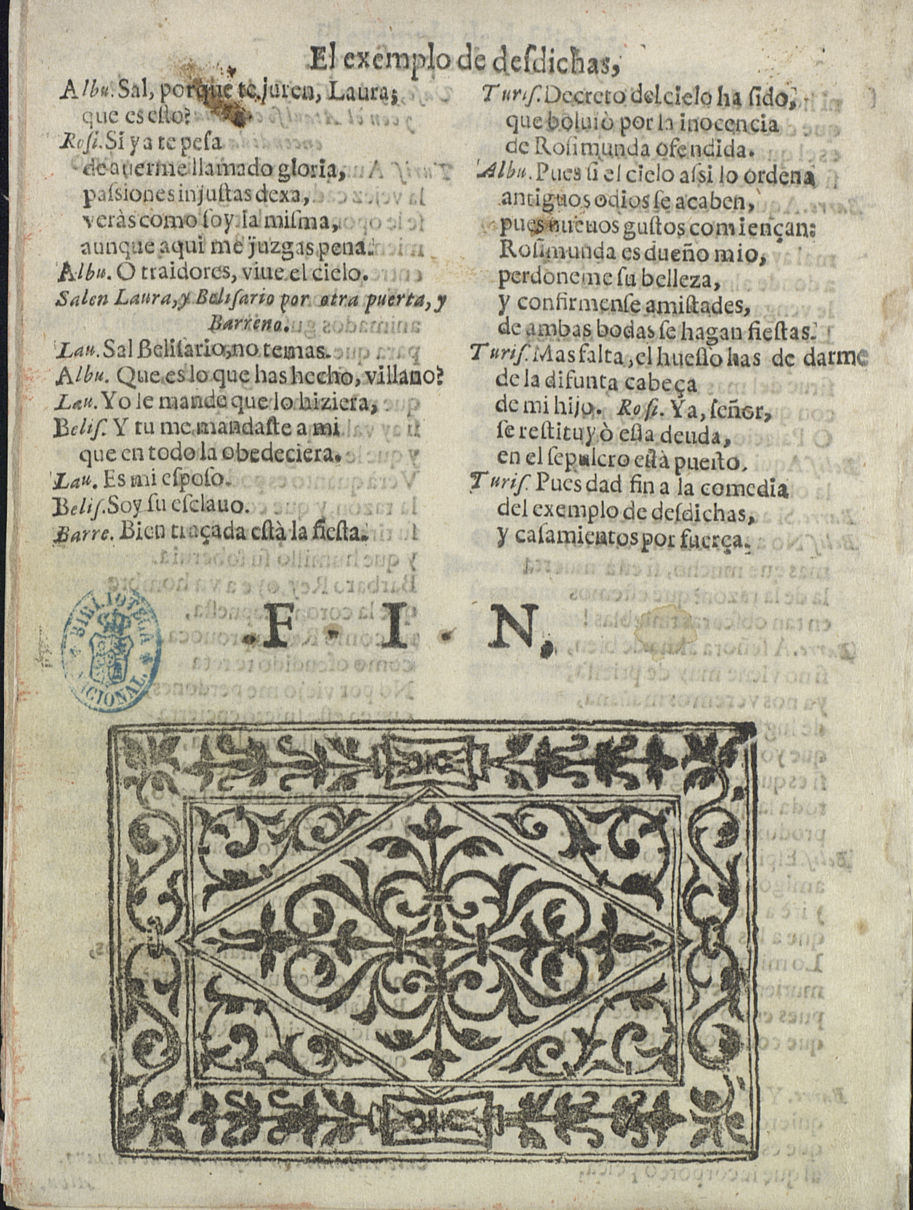 El exemplo de desdichas,
Albu. Sal, porque te juren, Laura;
que es esto?
Rosi. Si ya te pesa
de auerme llamado gloria,
passiones injustas dexa,
veràs como soy la misma,
aunque aqui me juzgas pena.
Albu. O traidores, viue el cielo.
Salen Laura, y Belisario por otra puerta, y
Barreno.
Lau. Sal Belisario, no temas.
Albu. Que es lo que has hecho, villano?
Lau. Yo le mandè que lo hiziera,
Belis. Y tu me mandaste a mi
que en todo la obedeciera.
Lau. Es mi esposo.
Belis. Soy su esclauo.
Barre. Bien traçada està la fiesta.
Turis. Decreto del cielo ha sido,
que boluiò por la inocencia
de Rosimunda ofendida.
Albu. Pues si el cielo assi lo ordena
antiguos odios se acaben,
pues nueuos gustos comiençan:
Rosimunda es dueño mio,
perdoneme su belleza,
y confirmense amistades,
de ambas bodas se hagan fiestas.
Turis. Mas falta, el huesso has de darme
de la difunta cabeça
de mi hijo. Rosi. Ya, señor,
se restituyò essa deuda,
en el sepulcro està puesto.
Turis. Pues dad fin a la comedia
del exemplo de desdichas,
y casamientos por fuerça.
F I N,
BIBLIOTECA
NACIONAL